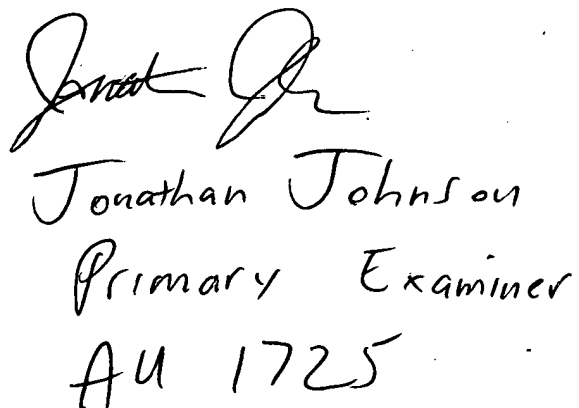 Jonathan Johnson
Primary Examiner
AU 1725